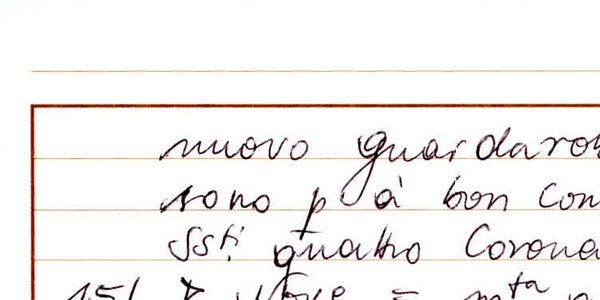 nuovo guardaro
sono p à bon con
SSti quattro Corona
151